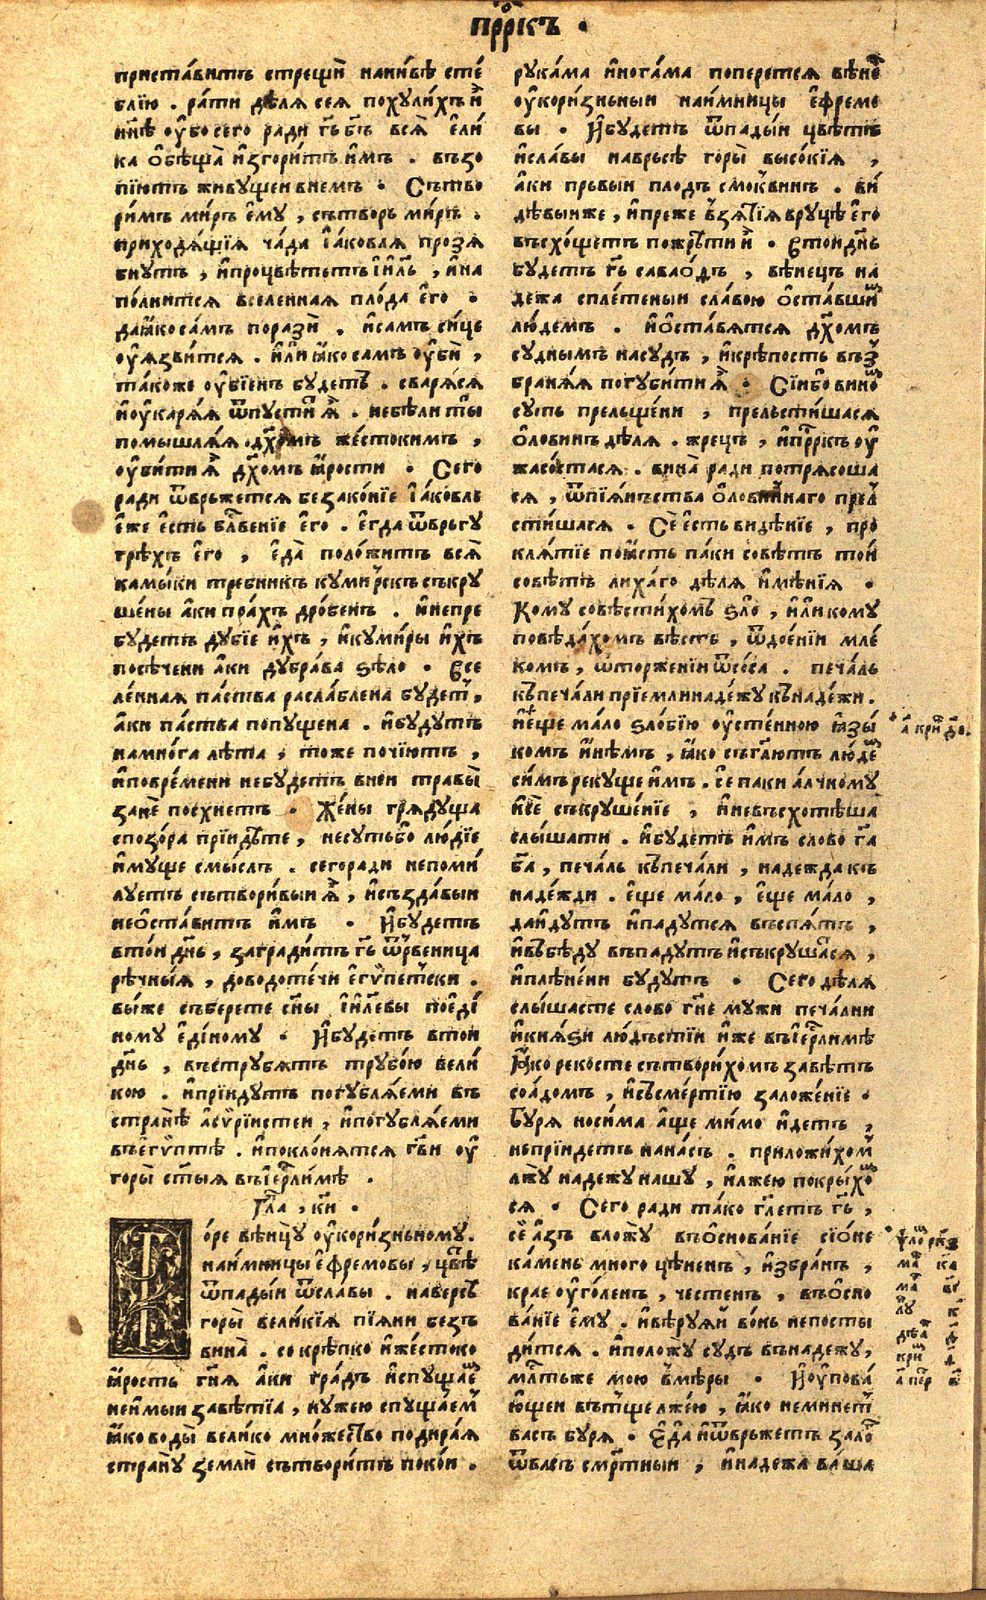 прⷪ҇ркъ .
приста́витъ стрещѝ нани́вѣ сте́
блїю . ра́ти дѣ́лѧ сеѧ̀ похули́хъ и҆̀
ны҃нѣ ᲂу҆̀бо сего̀ ради гь҃ бъ҃ всѧ̀ є҆ли́
ка ѻ҆бѣща̀ и҆згори́тъ и҆мъ . възо
пїю́тъ живꙋщеи внемъ . Сътво
ри́мъ ми́ръ є҆мꙋ̀ , сътворь ми́ръ .
приходѧ́щїѧ ча́да і҆а́ковлѧ прозѧ́
бнꙋтъ , и҆процвѣте́тъ і҆и҃ль , и҆на
по́лнитсѧ вселеннаѧ плода̀ є҆го̀ .
даꙗ҆́ко са́мъ поразѝ . и҆са́мъ си́це
ᲂу҆ѧ́звитсѧ . и҆лѝ ꙗ҆́ко самъ ᲂу҆бѝ ,
та́коже ᲂу҆бїе́нъ бꙋдетъ . сварѧ́сѧ
и҆ᲂу҆карѧ́ѧ ѿпꙋститъ ѧ҆̀ . небѣ́ли ты̀
помышлѧ́ѧ дх҃омъ же́стокимъ ,
ᲂу҆би́ти ѧ҆̀ дх҃омъ ꙗ҆́рости . Сего̀
ради ѿвръжетсѧ безако́нїе і҆а́ковлъ
є҆́же є҆́сть блв҃е́нїе є҆го̀ . є҆гда̀ ѿвръгꙋ
грѣхъ є҆го̀ , є҆да̀ поло́житъ всѧ̀
ка́мыки требникъ кꙋмирскъ съкрꙋ
ше́ны а҆́ки пра́хъ дро́бенъ . и҆непре
бꙋдетъ дꙋбїе и҆́хъ , и҆кꙋми́ры и҆́хъ
посѣчени а҆́ки дꙋбра́ва ѕѣло̀ . Все
ле́ннаѧ па́ства разсла́блена бꙋдетъ ,
а҆́ки па́ства попꙋщена . и҆бꙋдꙋтъ
намно́га лѣ́та , тоже почїю́тъ ,
и҆повре́мени небꙋдетъ вней травы̀
занѐ посхнетъ . Же́ны грѧдꙋща
спозо́ра прїидѣ́те , несꙋтьбо лю́дїе
и҆мꙋще смыслъ . сегоради непоми́
лꙋетъ сътвори́выи ѧ҆̀ , и҆създа́выи
неѻ҆ста́витъ и҆мъ . И҆бꙋдетъ
вто́й дн҃ь , загради́тъ гь҃ ѿрвени́ца
рѣчны́ѧ , доводоте́чи є҆гѵ́петски .
вы́же съберете сн҃ы і҆и҃левы поє҆ди́
номꙋ є҆ди́номꙋ . И҆бꙋдетъ втои
дн҃ь , въстрꙋбѧтъ трꙋбо́ю вели́
кою . и҆прїидꙋтъ погꙋблѧ́еми въ
странѣ̀ а҆сѷри́йстеи , и҆погꙋблѧ́еми
въє҆гѵ́птѣ . и҆покло́нѧтсѧ гв҃и ᲂу҆
горы̀ ст҃ы́ѧ въі҆ерⷭ҇ли́мѣ .
Гла҃ , ки҃ .
Го́ре вѣнцꙋ̀ ᲂу҆кори́зньномꙋ .
наи́мницы є҆фре́мовы , цвѣ́
ѿпады́и ѿсла́вы . навер́сѣ
горы̀ вели́кїѧ пїѧ́ни безъ
вина̀ . со крѣ́пко и҆же́стоко
ꙗ҆́рость гн҃ѧ а҆́ки гра́дъ и҆спꙋща́е
неи҆мы́и завѣ́тїѧ , нꙋжею спꙋща́емъ
ꙗ҆́ко воды̀ вели́ко мно́жество подира́ѧ
странꙋ̀ землѝ сътвори́тъ поко́и .
рꙋка́ма и҆нога́ма поперетсѧ вѣне́
ᲂу҆кори́зньныи наи́мницы є҆фре́мо
вы . И҆бꙋдетъ ѿпады́и цвѣтъ
и҆сла́вы наврьсѣ̀ горы̀ высо́кїѧ ,
а҆́ки прьвыи плодъ смокви́нъ . ви́
дѣвыиже , и҆преже взѧ́тїѧ врꙋцѣ̀ є҆го̀
въсхо́щетъ пожрѣ́ти и҆̀ . Втои дн҃ь
бꙋдетъ гь҃ савао́ѳъ , вѣне́цъ на
дежа спле́теныи сла́вою ѻ҆ста́вши
лю́демъ . и҆ѻ҆ста́вѧтсѧ дх҃омъ
сꙋднымъ насꙋдъ , и҆крѣ́пость въз
бранѧ́ѧ погꙋби́ти ѧ҆̀ . Сїи́бо вино́
сꙋть прельще́ни , прельсти́шасѧ
ѻ҆лови́нъ дѣ́лѧ . жрецъ , и҆прⷪ҇ркъ ᲂу҆
жасо́стасѧ . вина̀ ради потрѧсоша
сѧ , ѿпїѧ́ньства ѻ҆лови́ннаго прел
сти́шасѧ . Се́ є҆сть видѣ́нїе , про
клѧ́тїе поꙗ҆́сть паки совѣ́тъ то́й
совѣ́тъ лиха́го дѣ́лѧ и҆мѣ́нїѧ .
Комꙋ̀ совѣсти́хомъ ѕло̀ , и҆лѝ комꙋ
повѣ́дахомъ вѣ́сть , ѿдое́нїи мле́
комъ , ѿторже́нїи ѿсо́са . печа́ль
къпеча́ли прїемли надежꙋ къна́дежи .
и҆є҆́ще ма́ло ѕло́бїю ᲂу҆сте́нною ꙗ҆зы́
комъ и҆́нѣмъ , ꙗ҆́ко съгл҃ютъ лю́де
си́мъ рекꙋще и҆мъ . се́ паки а҆́лчномꙋ
и҆се́ съкрꙋше́нїе , и҆невъсхотѣша
слы́шати . и҆бꙋдетъ и҆мъ слово гⷭ҇а
бг҃а , печа́ль къпеча́ли , надежда къ
на́дежди . є҆ще ма́ло , є҆ще ма́ло ,
даи́дꙋтъ и҆падꙋтсѧ въспѧ́ть ,
и҆въбѣдꙋ въпадꙋтъ и҆съкрꙋша́тсѧ ,
и҆плѣне́ни бꙋдꙋтъ . Сего̀ дѣ́лѧ
слы́шасте слово гн҃е мꙋжи печа́лни
и҆кнѧ́ѕи лю́дьстїи и҆же въі҆ерⷭ҇ли́мѣ
Ꙗ҆́ко рекосте сътвори́хомъ завѣ́тъ
соа́домъ , и҆съсме́ртїю заложе́нїе .
бꙋрѧ носи́ма а҆́ще ми́мо и҆детъ ,
непрїидетъ нана́съ . приложи́хом
лжꙋ̀ надежꙋ нашꙋ , и҆лжею покры́хо
сѧ . Сего ради та́ко гл҃етъ гь҃ ,
се́ а҆́зъ вложꙋ̀ въѻ҆снова́нїе сїо́не
ка́мень много цѣ́ненъ , и҆збра́нъ ,
крае ᲂу҆го́ленъ , че́стенъ , въѻ҆сно
ва́нїе є҆мꙋ̀ . и҆вѣ́рꙋѧй во́нь непосты
ди́тсѧ . и҆положꙋ̀ сꙋдъ въна́дежꙋ ,
мл҃тьже мою̀ вмѣ́ры . И҆ᲂу҆пова́
ю́щеи вътще лже́ю , ꙗ҆́ко неминетъ
васъ бꙋрѧ . Є҆да̀ и҆ѿвръжетъ зало
ѿвасъ смр҃тныи , и҆надежа ва́ша